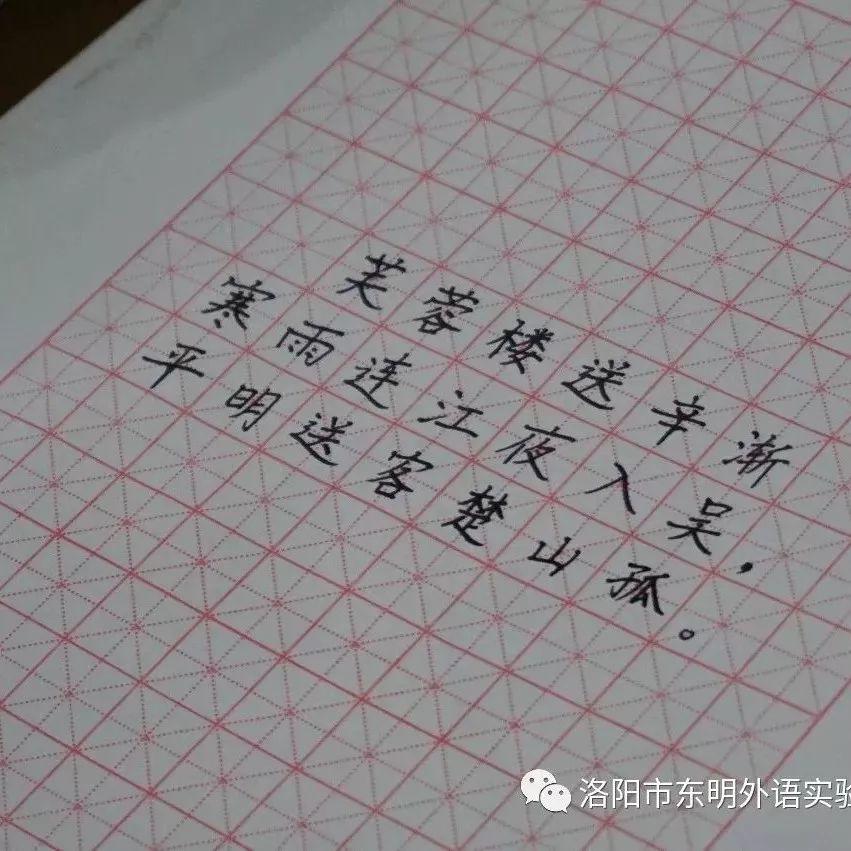 芙蓉楼送辛渐
寒雨连江夜入吴，
平明送客楚山孤。
洛阳市东明外语实验